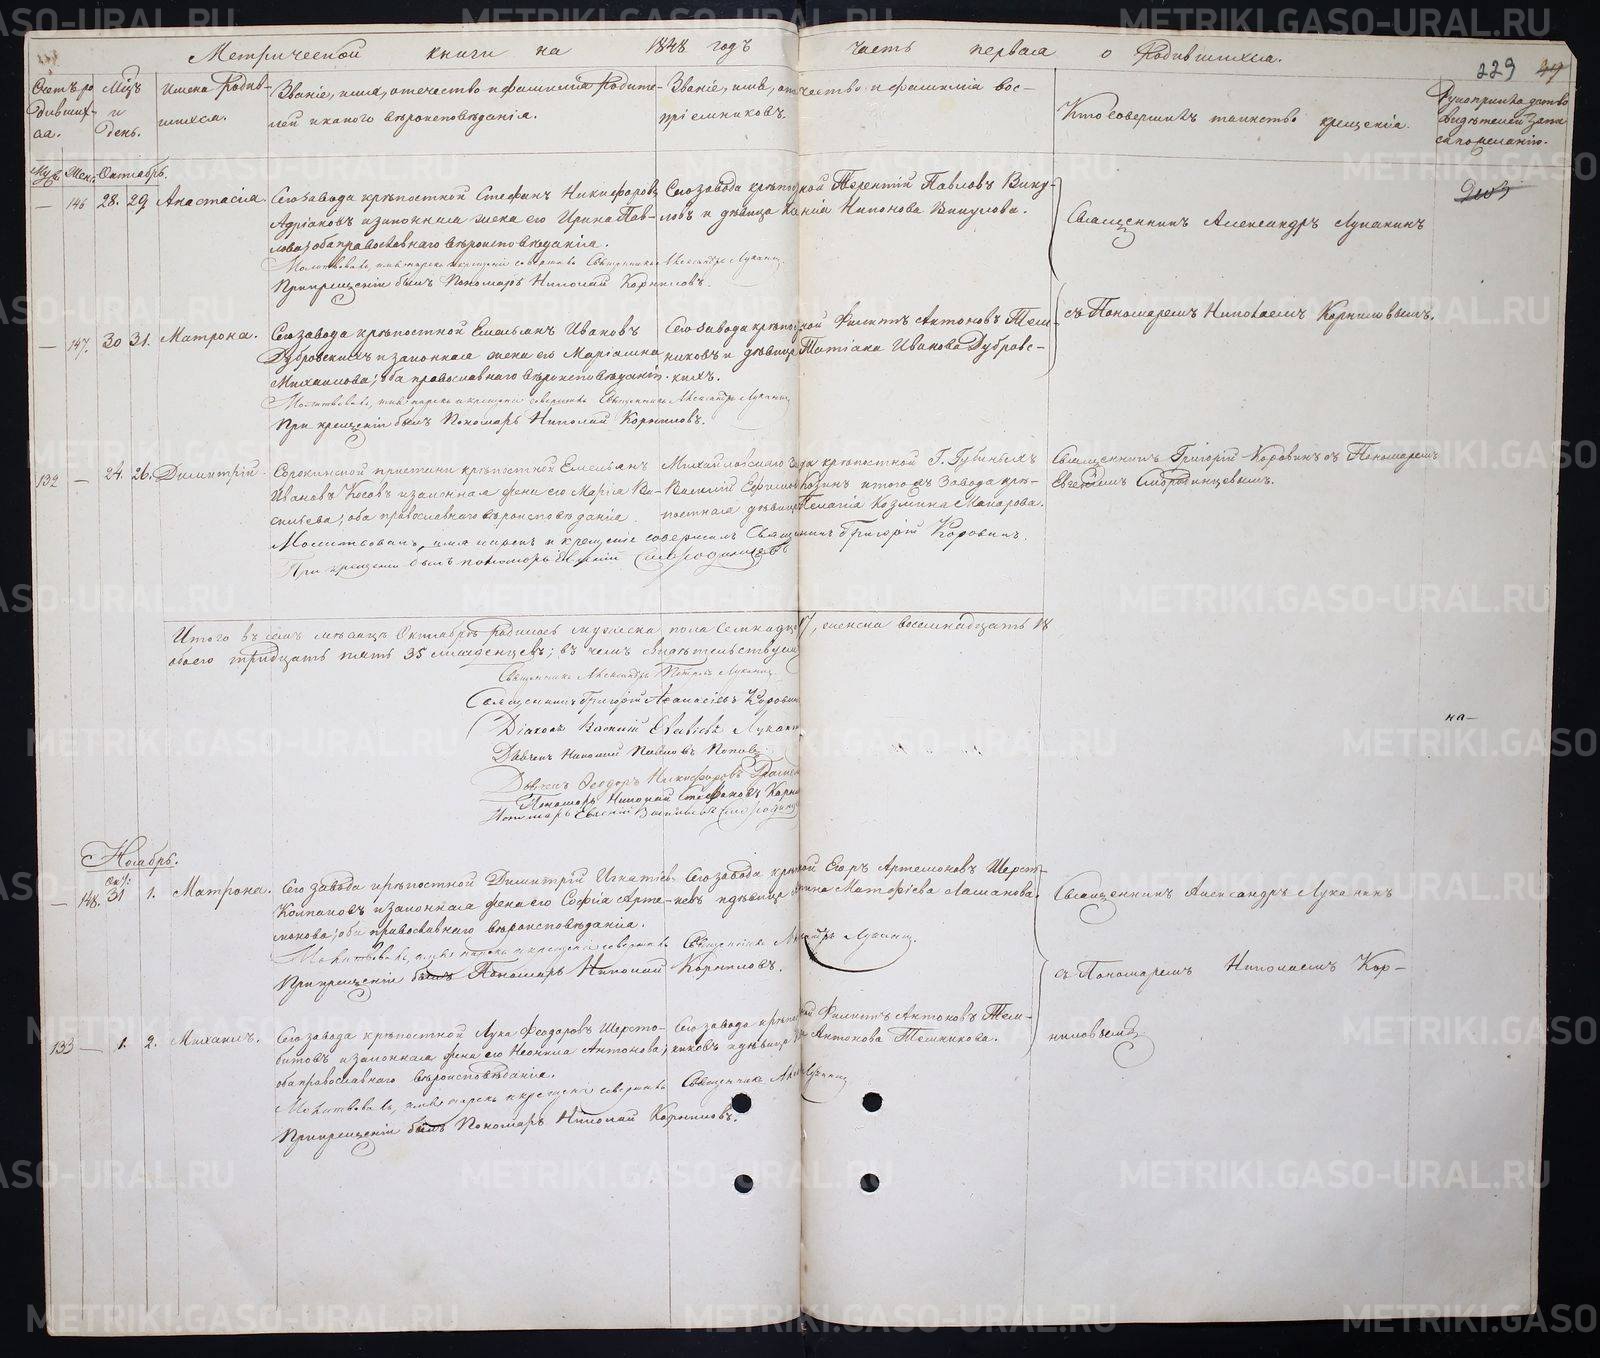 Метрической книги на 1848 годъ часть первая о Родившихся.
229
Счетъ родившихся.
Мѣцъ и День.
Имена Родившихся.
Званіе, имя, отечество и фамилія Родителей и какого вѣроисповѣданія.
Званіе, имя, отечество и фамилія воспріемниковъ.
Кто совершилъ таинство крещенія.
Рукоприкладство свидѣтелей записи по желанію.
Муж. Жен. Октябрь.
— 146 28. 29. Анастасія.
Сего завода крѣпостной Стефанъ Никифоровъ
Адріановъ и законная жена его Ирина Пав-
лова; оба православнаго вѣроисповѣданія.
Сего завода крѣпостной Терентій Павловъ Вику-
ловъ и дѣвица Никонова Викулова.
Молитвовалъ, имя нарекъ и крещеніе совершилъ Священникъ Александръ Луканинъ
При крещеніи былъ Пономарь Николай Корниловъ.
Священникъ Александръ Луканинъ
съ Пономаремъ Николаемъ Корниловымъ.
— 147. 30 31. Матрона.
Сего завода крѣпостной Емельянъ Ивановъ
Дубровскихъ и законная жена его Маріамна
Михаилова; оба православнаго вѣроисповѣданія.
Сего завода крѣпостной Филиппъ Антоновъ Теш-
никовъ и дѣвица Татіана Иванова Дубровс-
кихъ.
Молитвовалъ, имя нарекъ и крещеніе совершилъ Священникъ Александръ Луканинъ
При крещеніи былъ Пономарь Николай Корниловъ.
132 — 24. 26. Димитрій.
Сорокинской пристани крѣпостной Емельянъ
Ивановъ Косовъ и законная жена его Марія Ва-
сильева; оба православнаго вѣроисповѣданія.
Михайловскаго Завода крѣпостной Г. Губиныхъ
Василій Ефимовъ Козинъ и того жъ Завода крѣ-
постная дѣвица Пелагія Козмина Макарова.
Священникъ Григорій Коровинъ съ Пономаремъ
Евгеніемъ Смородинцевымъ.
Молитвовалъ, имя нарекъ и крещеніе совершилъ Священникъ Григорій Коровинъ.
При крещеніи былъ пономарь Евгеній Смородинцевъ
Итого въ семъ мѣсяцѣ Октябрѣ родилось мужеска пола семнадцать 17, женска восемнадцать 18
обоего тридцать пять 35 младенцевъ; въ чемъ свидѣтельствуемъ
Священникъ Александръ Петровъ Луканинъ
Священникъ Григорій Аѳанасіевъ Коровинъ
Діаконъ Василій Луканинъ
Дьячекъ Николай Павловъ Поповъ
Дьячекъ Ѳеодоръ Никифоровъ
Пономарь Николай Стефановъ Корниловъ
Пономарь Евгеній Васильевъ Смородинцевъ
на—
Ноябрь.
— 148. Окт: 31 1. Матрона.
Сего завода крѣпостной Димитрій Игнатіевъ
Колпаковъ и законная жена его Софія Арте-
монова; оба православнаго вѣроисповѣданія.
Сего завода крѣпостной Егоръ Артемоновъ Шерст-
невъ и дѣвица Матфіева Лашанова.
Молитвовалъ, имя нарекъ и крещеніе совершилъ Священникъ Александръ Луканинъ.
При крещеніи былъ Пономарь Николай Корниловъ.
Священникъ Александръ Луканинъ
съ Пономаремъ Николаемъ Кор-
ниловымъ
133 — 1. 2. Михаилъ.
Сего завода крѣпостной Лука Ѳеодоровъ Шерсто-
битовъ и законная жена его Неонила Антонова;
оба православнаго вѣроисповѣданія.
Сего завода крѣпостной Филиппъ Антоновъ Теш-
никовъ и дѣвица Антонова Тешникова.
Молитвовалъ, имя нарекъ и крещеніе совершилъ Священникъ Александръ Луканинъ
При крещеніи былъ Пономарь Николай Корниловъ.
METRIKI.GASO-URAL.RU